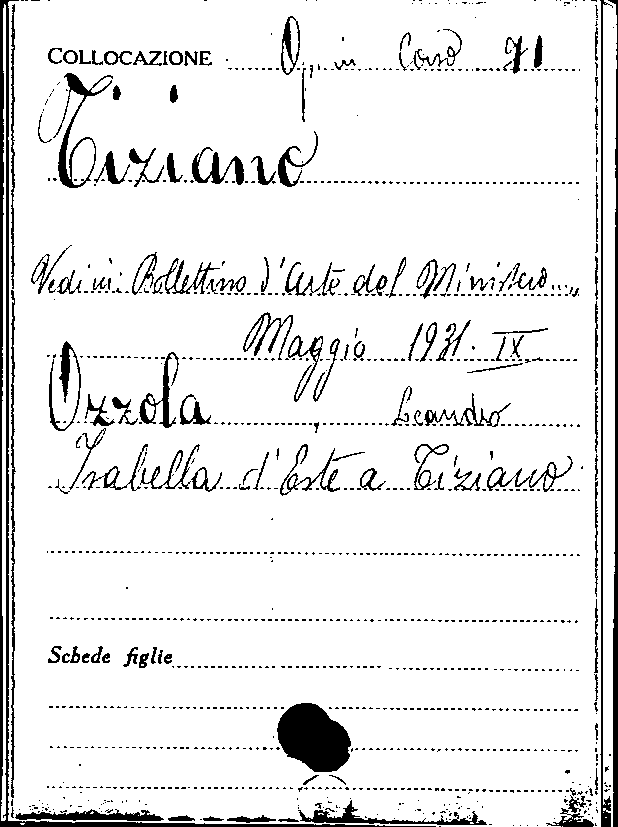 COLLOCAZIONE Op. in Corso 71
Tiziano
Vedi in: Bollettino d'Arte del Ministero...„
Maggio 1931. IX
Ozzola, Leandro
Isabella d'Este a Tiziano
Schede figlie